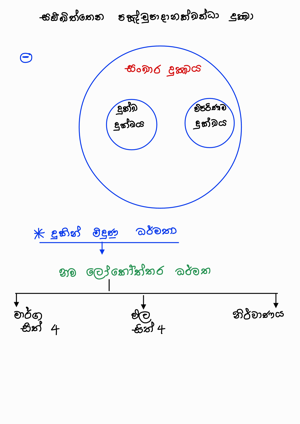 සඞ්ඛිත්තෙන පඤ්චුපාදානක්ඛන්ධා දුක්ඛා
සංඛාර දුක්ඛය
දුක්ඛ
දුක්ඛය
විපරිණාම
දුක්ඛය
* දුකින් මිදුණු ධර්මතා
නව ලෝකෝත්තර ධර්මත
මාර්ග
සිත් 4
ඵල
සිත් 4
නිර්වාණය